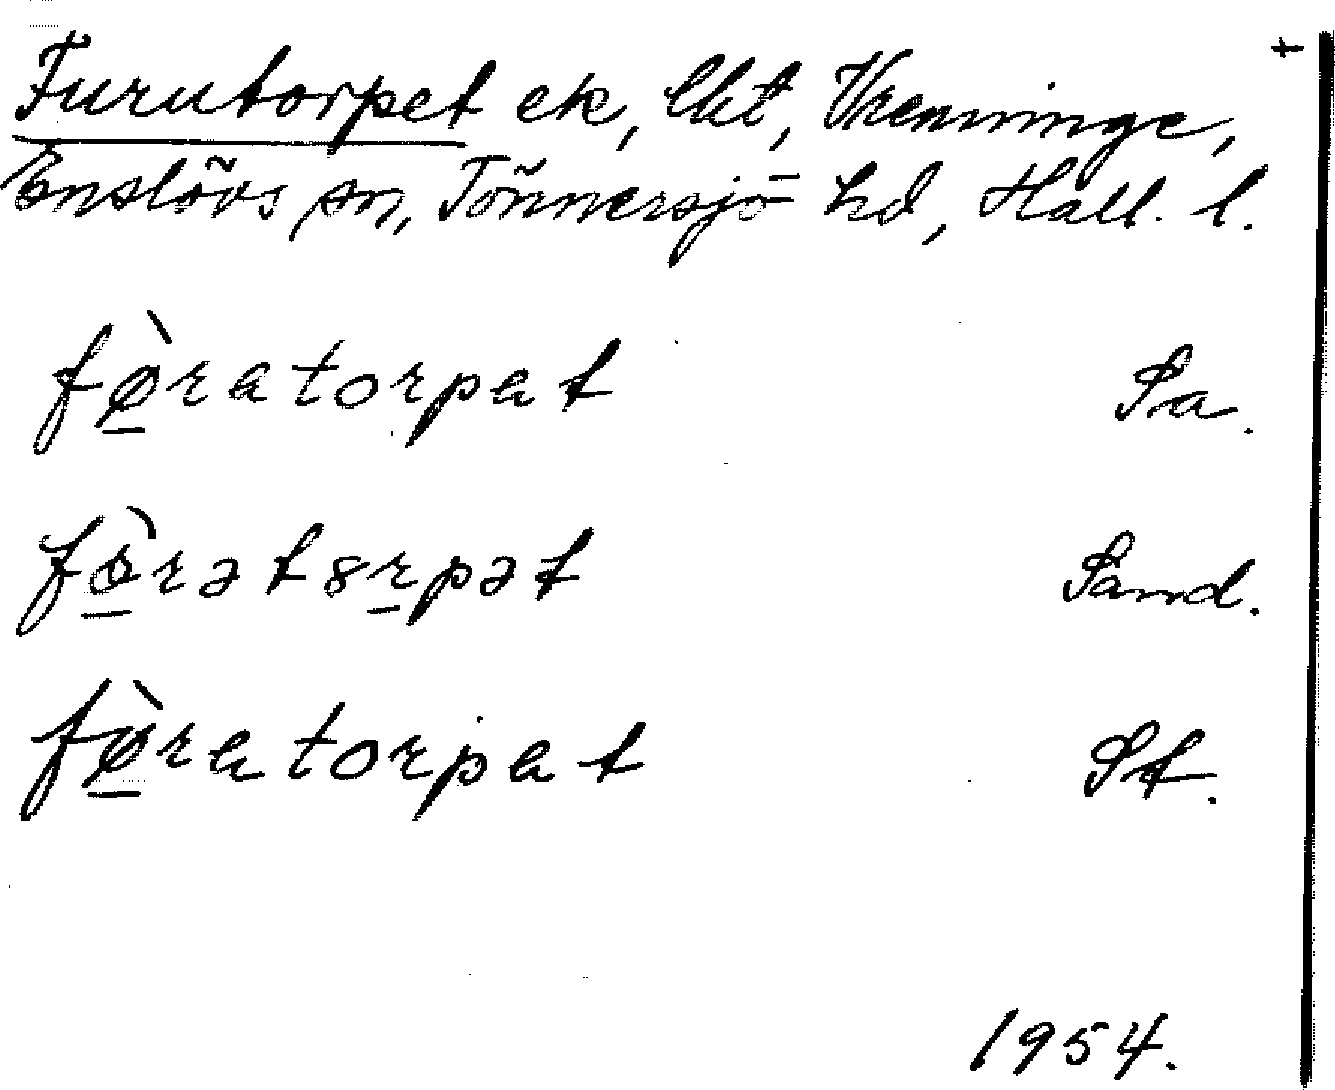 +
Furutorpet ek, lht, Vrenninge,
Enslövs sn, Tönnersjö hd, Hall. l.
fø̱̀ratorpət Sa.
fö̱̀rətɞr̠pət Sand.
fø̱̀ratorpat St.
1954.